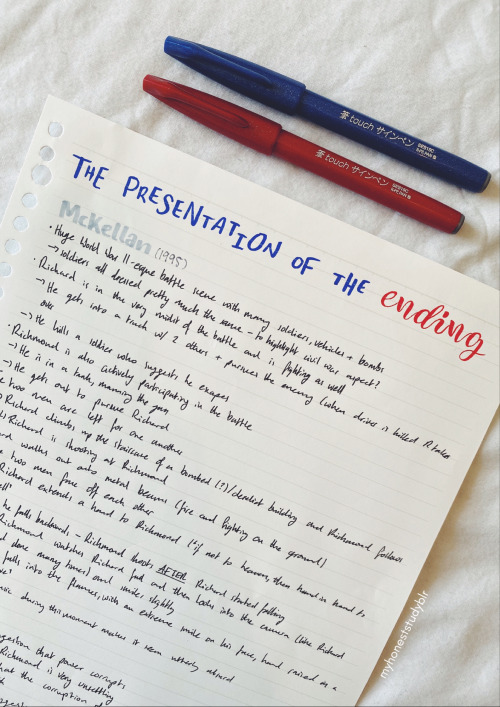 筆touch サインペン SES15C
筆touch サインペン SES15C
THE PRESENTATION OF THE ending
McKellan (1995)
· Huge World War II-esque battle scene with many soldiers, vehicles + bombs
→ soldiers all dressed pretty much the same - to highlight civil war aspect?
· Richard is in the very midst of the battle and is fighting as well
→ He gets into a truck w/ 2 others + pursues the enemy (when driver is killed R takes
over
→ He kills a soldier who suggests he escapes
· Richmond is also actively participating in the battle
→ He is in a tank, manning the gun
→ He gets out to pursue Richard
two men are left for one another
Richard climbs up the staircase of a bombed (?)/derelict building and Richmond follows
Richard is shooting at Richmond
walks out onto metal beams (fire and fighting on the ground)
two men face off each other
Richard extends a hand to Richmond ("if not to heaven, then hand in hand to
hell"
he falls backwards - Richmond shoots AFTER Richard started falling
Richmond watches Richard fall and then looks into the camera (like Richard
done many times) and smiles slightly
falls into the flames, with an extreme smile on his face, hand raised as a
during this moment makes it seem utterly absurd
that power corrupts
Richmond is very unsettling
that the corruption of
myhoneststudyblr